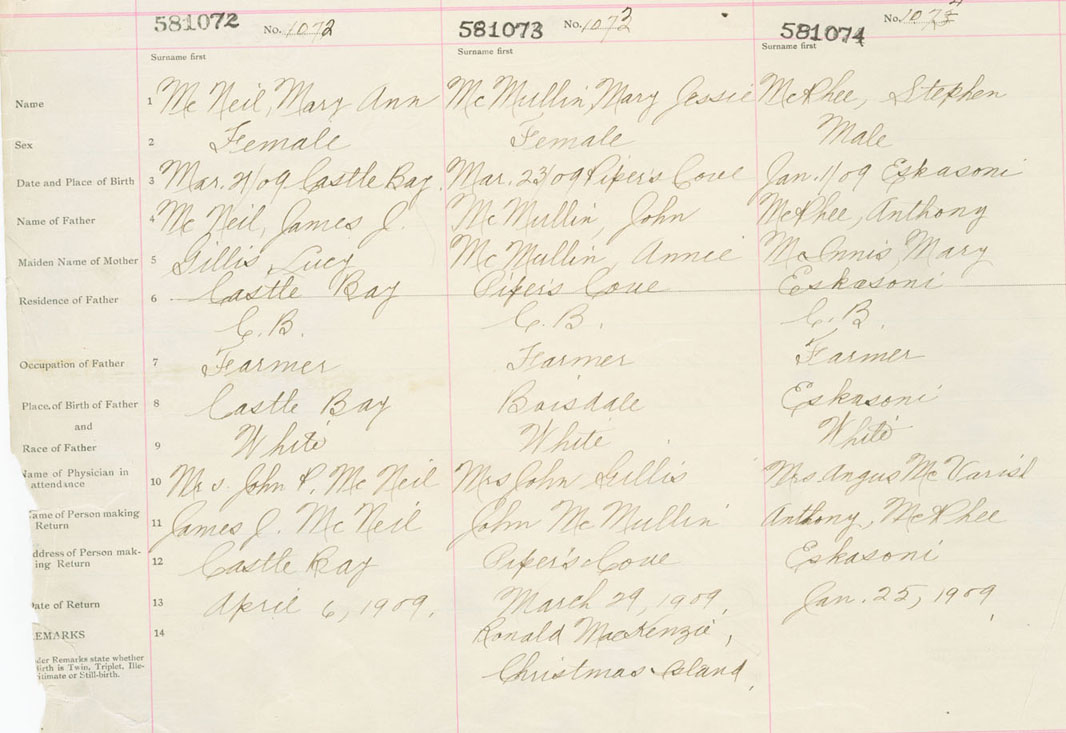 581072 No. 1072 581073 No. 1073 581074 No. 1074
Surname first Surname first Surname first
Name 1 Mc Neil, Mary Ann Mc Mullin, Mary Jessie McPhee, Stephen
Sex 2 Female Female Male
Date and Place of Birth 3 Mar. 21/09 Castle Bay. Mar. 23/09 Piper's Cove Jan. 1/09 Eskasoni
Name of Father 4 Mc Neil, James J. Mc Mullin, John McPhee, Anthony
Maiden Name of Mother 5 Gillis, Lucy Mc Mullin, Annie McInnis, Mary
Residence of Father 6 Castle Bay Piper's Cove Eskasoni
C. B. C. B. C. B.
Occupation of Father 7 Farmer Farmer Farmer
Place of Birth of Father 8 Castle Bay Boisdale Eskasoni
and
Race of Father 9 White White White
Name of Physician in
attendance 10 Mrs. John P. Mc Neil Mrs John Gillis Mrs Angus Mc Varish
ame of Person making
Return 11 James J. Mc Neil John Mc Mullin Anthony, McPhee
ddress of Person mak-
ing Return 12 Castle Bay Piper's Cove Eskasoni
Date of Return 13 April 6, 1909. March 29, 1909. Jan. 25, 1909.
EMARKS 14 Ronald MacKenzie,
der Remarks state whether
irth is Twin, Triplet, Ille-
itimate or Still-birth.
Christmas Island.